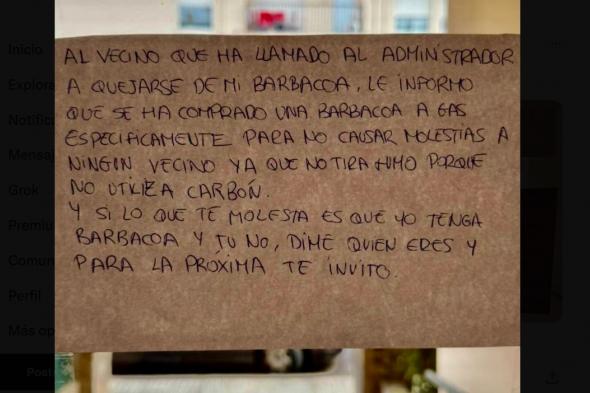 AL VECINO QUE HA LLAMADO AL ADMINISTRADOR
A QUEJARSE DE MI BARBACOA, LE INFORMO
QUE SE HA COMPRADO UNA BARBACOA A GAS
ESPECIFICAMENTE PARA NO CAUSAR MOLESTIAS A
NINGUN VECINO YA QUE NO TIRA HUMO PORQUE
NO UTILIZA CARBON.
Y SI LO QUE TE MOLESTA ES QUE YO TENGA
BARBACOA Y TU NO, DIME QUIEN ERES Y
PARA LA PRÓXIMA TE INVITO.
Inicio
Explora
Notific
Mensaj
Grok
Premiu
Comun
Perfil
Más op
Post